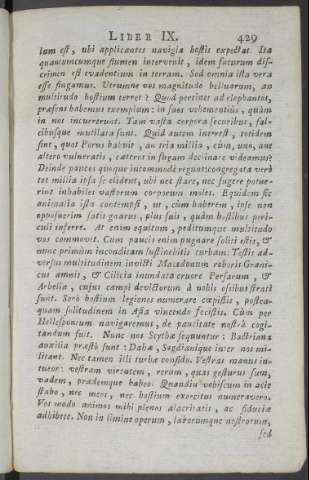 LIBER IX. 429
lum est, ubi applicantes navigia hostis expectat. Ita
quantumcumque flumen intervenit, idem futurum dis-
crimen est evadentium in terram. Sed omnia ista vera
esse fingamus. Utrumne vos magnitudo belluarum, an
multitudo hostium terret? Quod pertinet ad elephantos,
præsens habemus exemplum: in suos vehementiùs, quàm
in nos incurrerunt. Tam vasta corpora securibus, fal-
cibusque mutilata sunt. Quid autem interest, totidem
sint, quot Porus habuit, an tria millia, cùm, uno, aut
altero vulneratis, cæteros in fugam declinare videamus?
Deinde paucos quoque incommodè regunt: congregata verò
tot millia ipsa se elidunt, ubi nec stare, nec fugere potue-
rint inhabiles vastorum corporum moles. Equidem sic
animalia ista contempsi, ut, cùm haberem, ipse non
opposuerim satis gnarus, plus suis, quàm hostibus peri-
culi inferre. At enim equitum, peditumque multitudo
vos commovit. Cum paucis enim pugnare soliti estis, &
nunc primùm inconditam sustinebitis turbam: Testis ad-
versus multitudinem invicti Macedonum roboris Grani-
cus amnis, & Cilicia inundata cruore Persarum, &
Arbelia, cujus campi devictorum à nobis ossibus strati
sunt. Serò hostium legiones numerare cœpistis, postea-
quam solitudinem in Asia vincendo fecistis. Cùm per
Hellespontum navigaremus, de paucitate nostrâ cogi-
tandum fuit. Nunc nos Scythæ sequuntur: Bactriana
auxilia præstò sunt: Dahæ, Sogdianique inter nos mi-
litant. Nec tamen illi turbæ confido. Vestras manus in-
tueor: vestram virtutem, rerum, quas gesturus sum,
vadem, prædemque habeo. Quandiu vobiscum in acie
stabo, nec meos, nec hostium exercitus numeravero.
Vos modò animos mihi plenos alacritatis, ac fiduciæ
adhibete. Non in limine operum, laborumque nostrorum,
sed